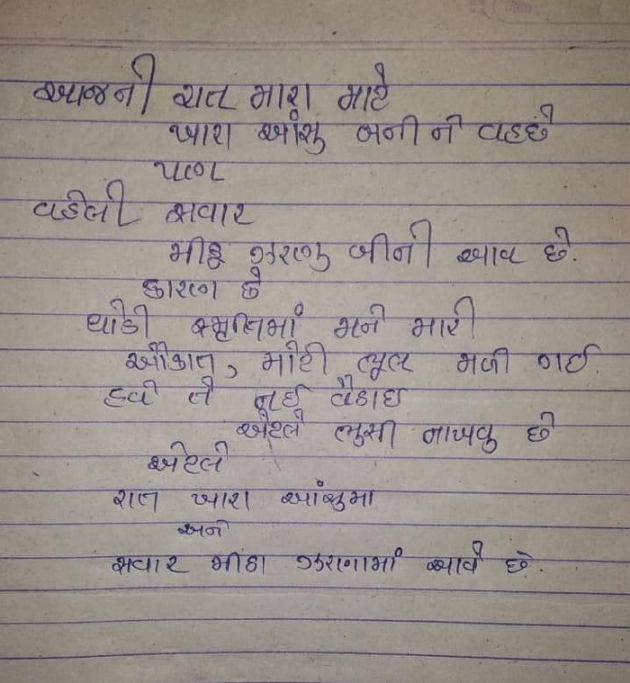 આજની રાત મારા માટે
ખારા આંસુ બની ને વહછે
પણ
વહેલી સવાર
મીઠુ ઝરણુ બીની આવ છે.
કારણ કે
થોડી સ્મૃતિમાં મને મારી
ઔકાત, મોટી ભૂલ મળી ગઈ.
હવે તે
એટલે ભુસી નાખવુ છે
એટલે
રાત ખારા આંસુમા
અને
સવાર મીઠા ઝરણામાં આવે છે.